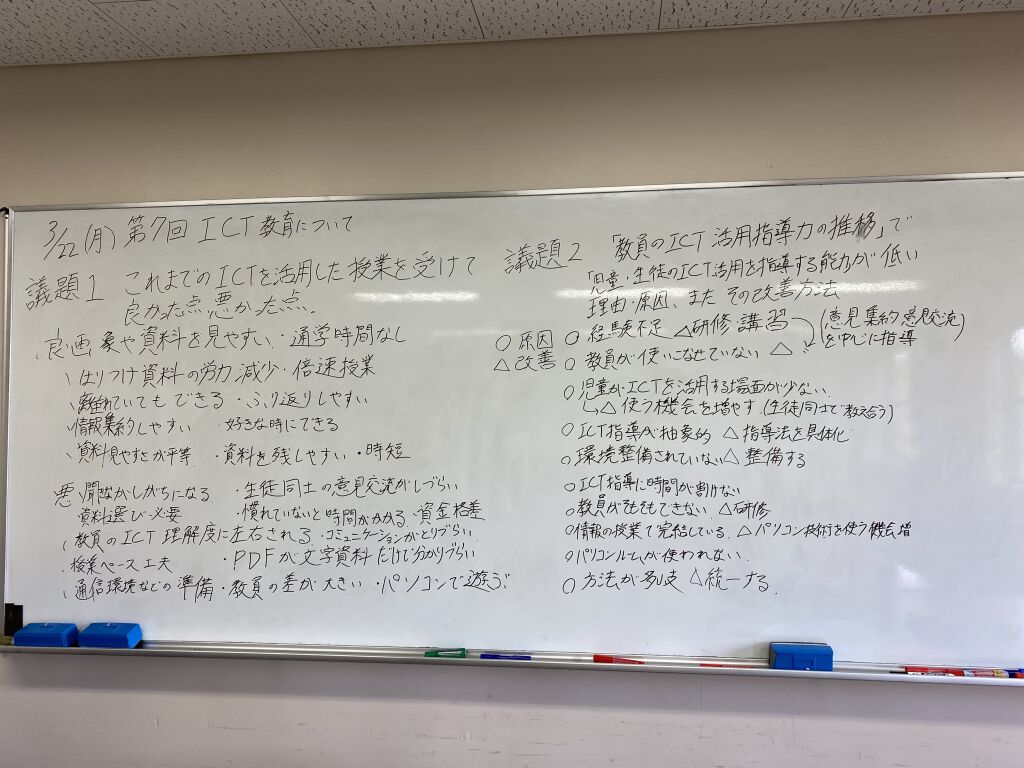 3/22(月) 第7回 ICT教育について
議題1 これまでのICTを活用した授業を受けて
良かった点 悪かった点.
良 ・画像や資料を見やすい ・通学時間なし
・はりつけ資料の労力減少 ・倍速授業
・離れていてもできる ・ふり返りしやすい
・情報集約しやすい ・好きな時にできる
・資料見やすさが平等 ・資料を残しやすい ・時短
悪 ・聞ながしがちになる ・生徒同士の意見交流がしづらい
資料選び必要 ・慣れていないと時間がかかる ・資金格差
・教員のICT理解度に左右される ・コミュニケーションがとりづらい
・授業ペース工夫 ・PDFが文字資料だけで分かりづらい
・通信環境などの準備 ・教員の差が大きい ・パソコンで遊ぶ
議題2 「教員のICT活用指導力の推移」で
「児童・生徒のICT活用を指導する能力が低い
理由・原因、また その改善方法
○原因
△改善
○経験不足 △研修 講習
○教員が使いこなせていない △
(意見集約 意見交流)
を中心に指導
○児童がICTを活用する場面が少ない
↳△ 使う機会を増やす (生徒同士で教え合う)
○ICT指導が抽象的 △指導法を具体化
○環境整備されていない △整備する
○ICT指導に時間が割けない
○教員がそもそもできない △研修
○情報の授業で完結している △パソコン技術を使う機会増
○パソコンルームが使われない
○方法が多岐 △統一する